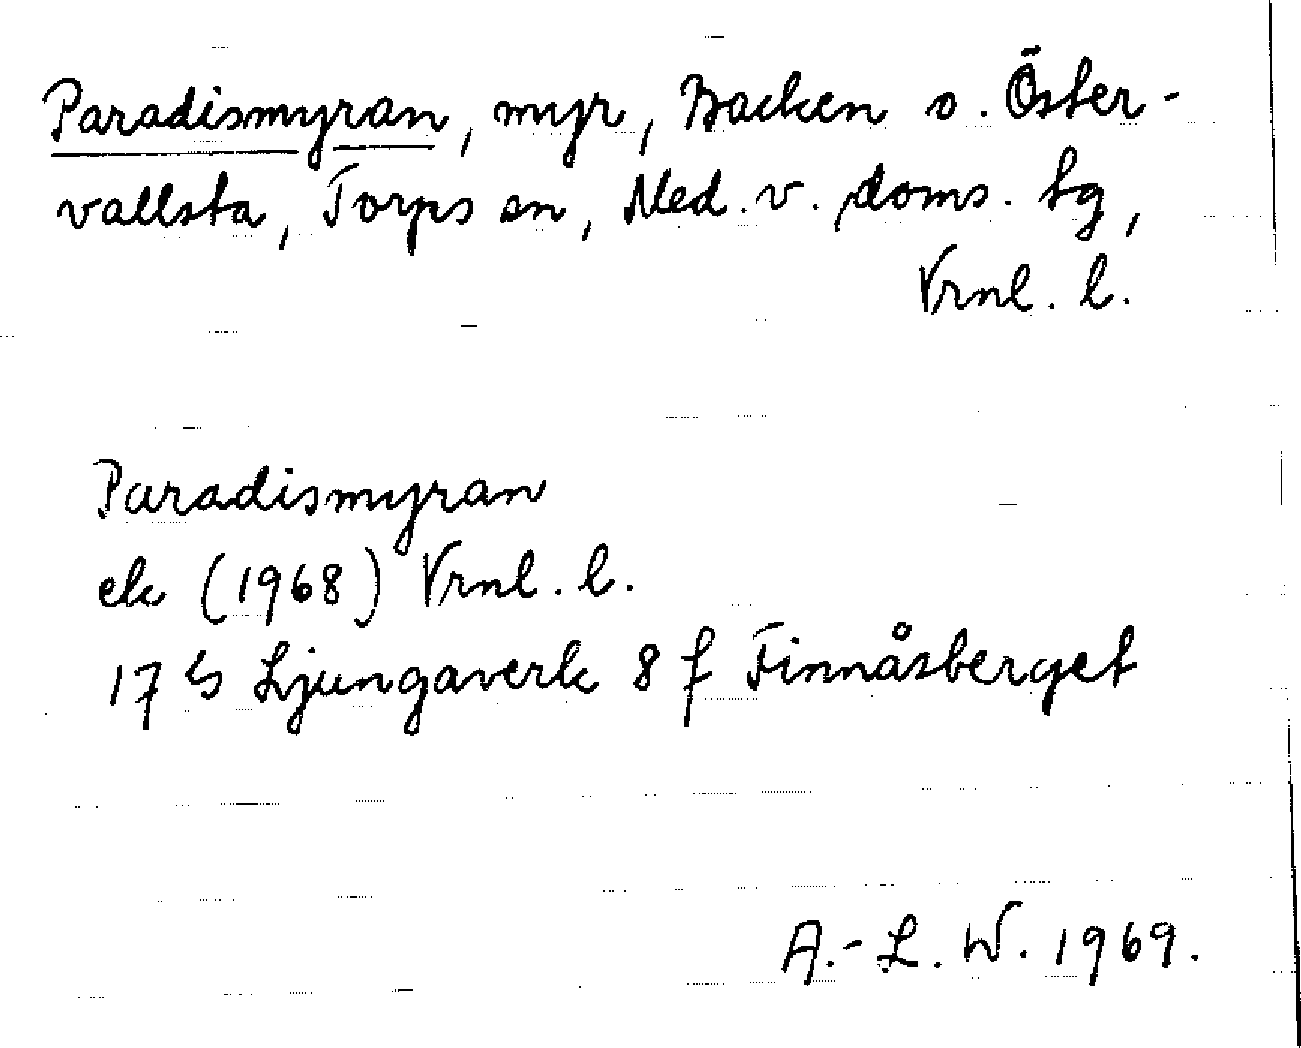 Paradismyran, myr, Backen o. Öster-
vallsta, Torps sn, Med. v. doms. tg,
Vrnl. l.
Paradismyran
ek (1968) Vrnl. l.
17 G Ljungaverk 8 f Finnåsberget
A.-L. W. 1969.